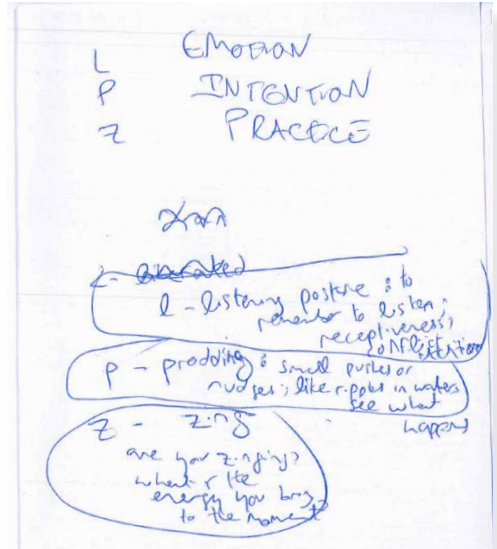 L EMOTION
P INTENTION
Z PRACTICE
l - listening posture : to
remember to listen ;
receptiveness ;
p - prodding : small pushes or
nudges ; like ripples in waters
see what
happens
Z - zing
are you zinging?
what r the
energy you bring
to the moment?